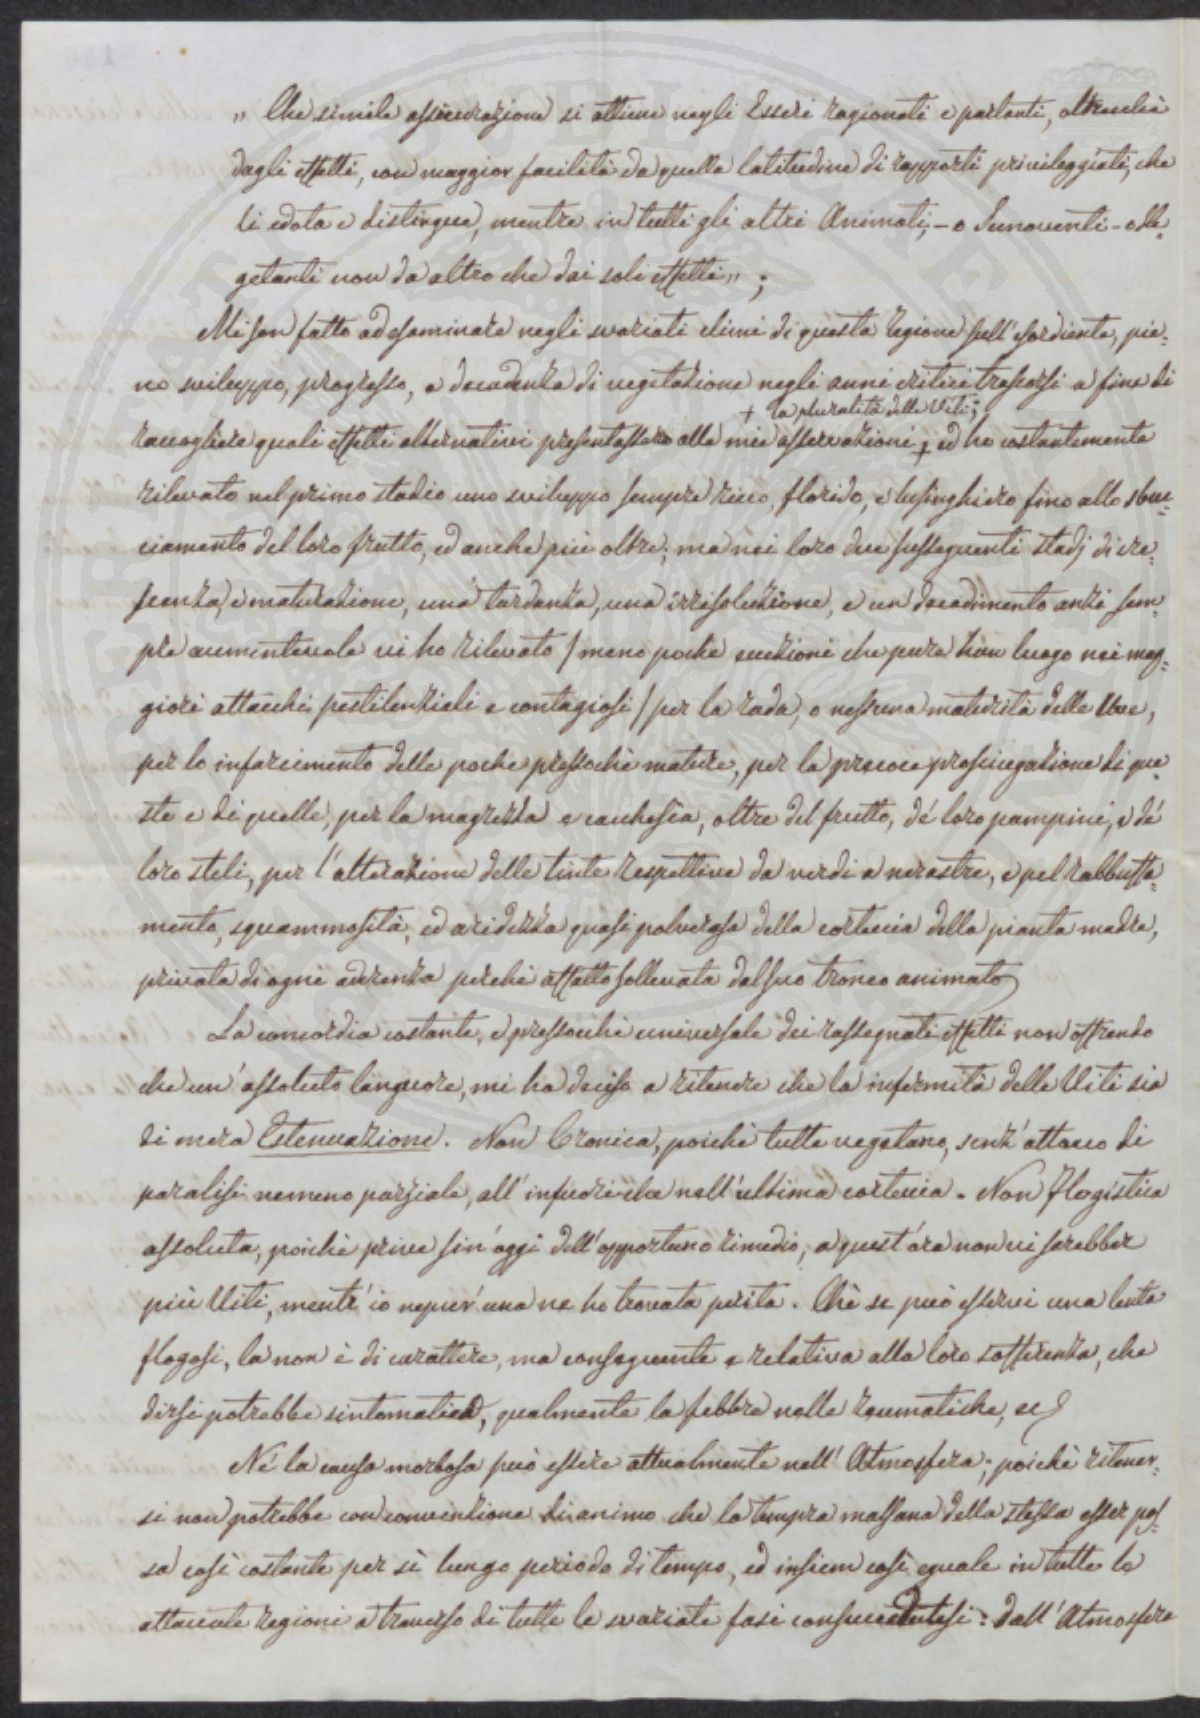 „ Che simile assicurazione si ottiene negli Esseri ragionati e parlanti, oltrechè
dagli effetti, con maggior facilità da quella latitudine di rapporti privileggiati, che
li dota e distingue, mentre in tutti gli altri Animali, – o Semoventi – o Ve=
getanti non da altro che dai soli effetti „ ;
Mi son fatto ad esaminare negli svariati climi di questa regione sull'esordiente, pie=
no sviluppo, progresso, e decadenza di vegetazione negli anni critici trascorsi a fine di
+ la pluralità delle Viti;
raccogliere quali effetti alternativi presentassero alle mie osservazioni + ed ho costantemente
rilevato nel primo stadio uno sviluppo sempre ricco, florido, e lusinghiero fino allo sboc=
ciamento del loro frutto, ed anche più oltre; ma nei loro due susseguenti stadj di cre=
scenza, e maturazione, una tardanza, una irrisoluzione, e un decadimento anzi sem=
pre aumentevole vi ho rilevato / meno poche eccezioni che pure han luogo nei mag=
giori attacchi pestilenziali e contagiosi / per la rada, o nessuna maturità delle Uve,
per lo infarcimento delle poche pressochè mature, per la precoce prosciugazione di que=
ste e di quelle, per la magrezza e cachesia, oltre del frutto, dé loro pampini, e dé
loro steli, per l'alterazione delle tinte respettive da verdi a nerastre, e pel rabbuffa=
mento, squammosità, ed aridezza quasi polverosa della corteccia della pianta madre,
privata di ogni aderenza perchè affatto sollevata dal suo tronco animato
La concordia costante, e pressocchè universale dei rassegnati effetti non offrendo
che un'assoluto languore, mi ha deciso a ritenere che la infermità delle Viti sia
di mera Estenuazione. Non Cronica, poichè tutte vegetano, senz'attacco di
paralisi nemeno parziale, all'infuori che nell'ultima corteccia. Non Flogistica
assoluta, poichè prive sin'oggi dell'opportuno rimedio, a quest'ora non vi sarebber
più Viti, mentr'io neppur'una ne ho trovata perita. Chè se può esservi una lenta
flogosi, la non è di carattere, ma conseguente e relativa alla loro sofferenza, che
dirsi potrebbe sintomatica, qualmente la febbre nelle reumatiche, ec
Né la causa morbosa può essere attualmente nell'Atmosfera; poichè ritener=
si non potrebbe con convinzione di animo che la tempra malsana della stessa esser pos=
sa così costante per sì lungo periodo di tempo, ed insiem così eguale in tutte le
attaccate regioni a traverso di tutte le svariate fasi consuccedutesi: dall'Atmosfera